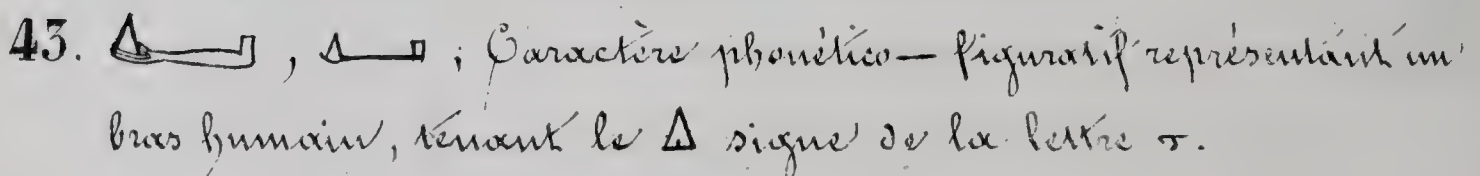 43. 𓂞, 𓂞; Caractère phonético-figuratif représentant un
bras humain, tenant le Δ signe de la lettre ⲧ.